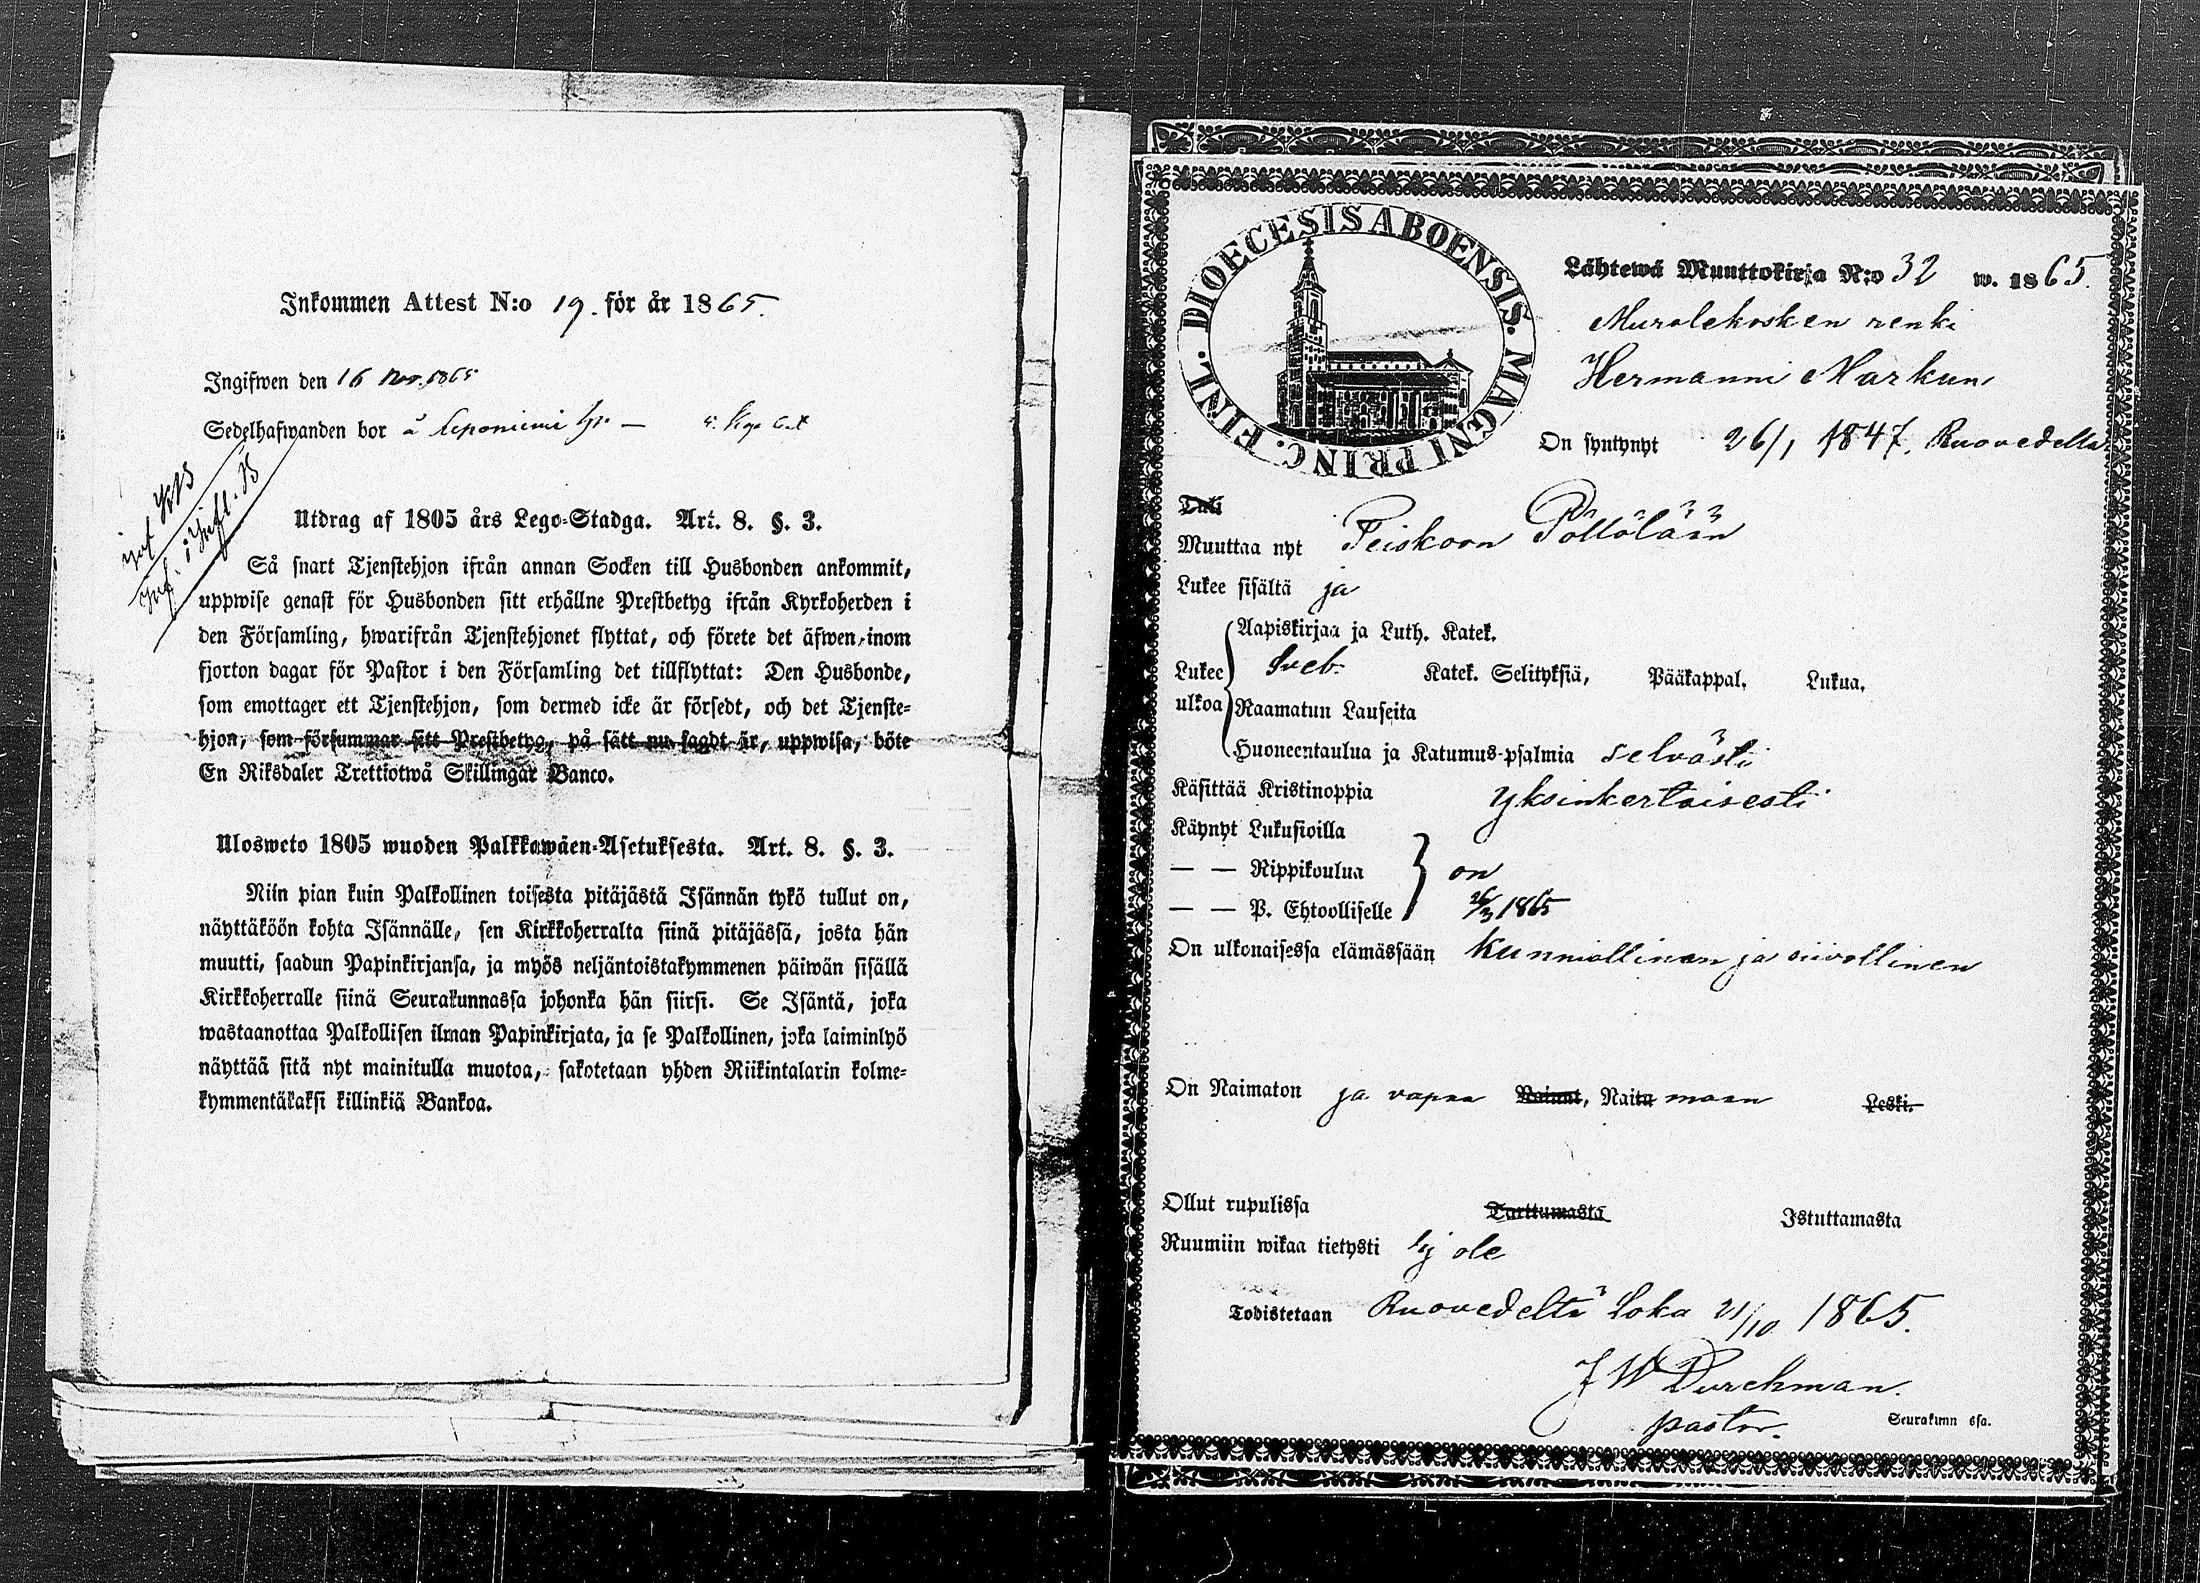 Inkommen Attest N:o 19. för år 1865.
Ingifwen den 16 Nov. 1865
Sedelhafwanden bor å
Utdrag af 1805 års Lego-Stadga. Art. 8. §. 3.
Så snart Tjenstehjon ifrån annan Socken till Husbonden ankommit,
uppwise genast för Husbonden sitt erhållne Prestbetyg ifrån Kyrkoherden i
den Församling, hwarifrån Tjenstehjonet flyttat, och förete det äfwen inom
fjorton dagar för Pastor i den Församling det tillflyttat: Den Husbonde,
som emottager ett Tjenstehjon, som dermed icke är försedt, och det Tjenste-
hjon, som försummar sitt Prestbetyg, på sätt nu sagdt är, uppwisa, böte
En Riksdaler Trettiotwå Skillingar Banco.
Ulosweto 1805 wuoden Palkkawäen-Asetuksesta. Art. 8. §. 3.
Niin pian kuin Palkollinen toisesta pitäjästä Isännän tykö tullut on,
näyttäköön kohta Isännälle, sen Kirkkoherralta siinä pitäjässä, josta hän
muutti, saadun Papinkirjansa, ja myös neljäntoistakymmenen päiwän sisällä
Kirkkoherralle siinä Seurakunnassa johonka hän siirsi. Se Isäntä, joka
wastaanottaa Palkollisen ilman Papinkirjata, ja se Palkollinen, joka laiminlyö
näyttää sitä nyt mainitulla muotoa, sakotetaan yhden Riikintalarin kolme-
kymmentäkaksi killinkiä Bankoa.
DIOECESIS ABOENSIS. MAGNI PRINC. FINL.
Lähtewä Muuttokirja N:o 32 w. 1865.
Murolekosken renki
Hermanni Markun
On syntynyt 26/1 1847. Ruovedellä
Tuli
Muuttaa nyt Teiskoon Pöllölään
Lukee sisältä ja
Aapiskirjaa ja Luth. Katek.
Lukee ulkoa Sveb. Katek. Selityksiä, Pääkappal. Lukua.
Raamatun Lauseita
Huoneentaulua ja Katumus-psalmia selvästi
Käsittää Kristinoppia yksinkertaisesti
Käynyt Lukusioilla
— — Rippikoulua on
— — P. Ehtoolliselle 26/3 1865
On ulkonaisessa elämässään kunniallinen ja siivollinen
On Naimaton ja vapaa Nainut, Naitu maan Leski.
Ollut rupulissa Tarttumasta Istuttamasta
Ruumiin wikaa tietysti Ej ole
Todistetaan Ruovedeltä Loka 21/10 1865.
J W Durchman.
pastor. Seurakunn ssa.